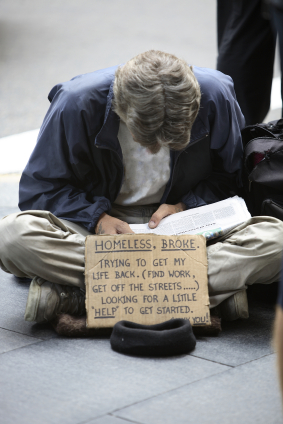 HOMELESS. BROKE.
TRYING TO GET MY
LIFE BACK. (FIND WORK,
GET OFF THE STREETS.....)
LOOKING FOR A LITTLE
"HELP" TO GET STARTED.
YOU!